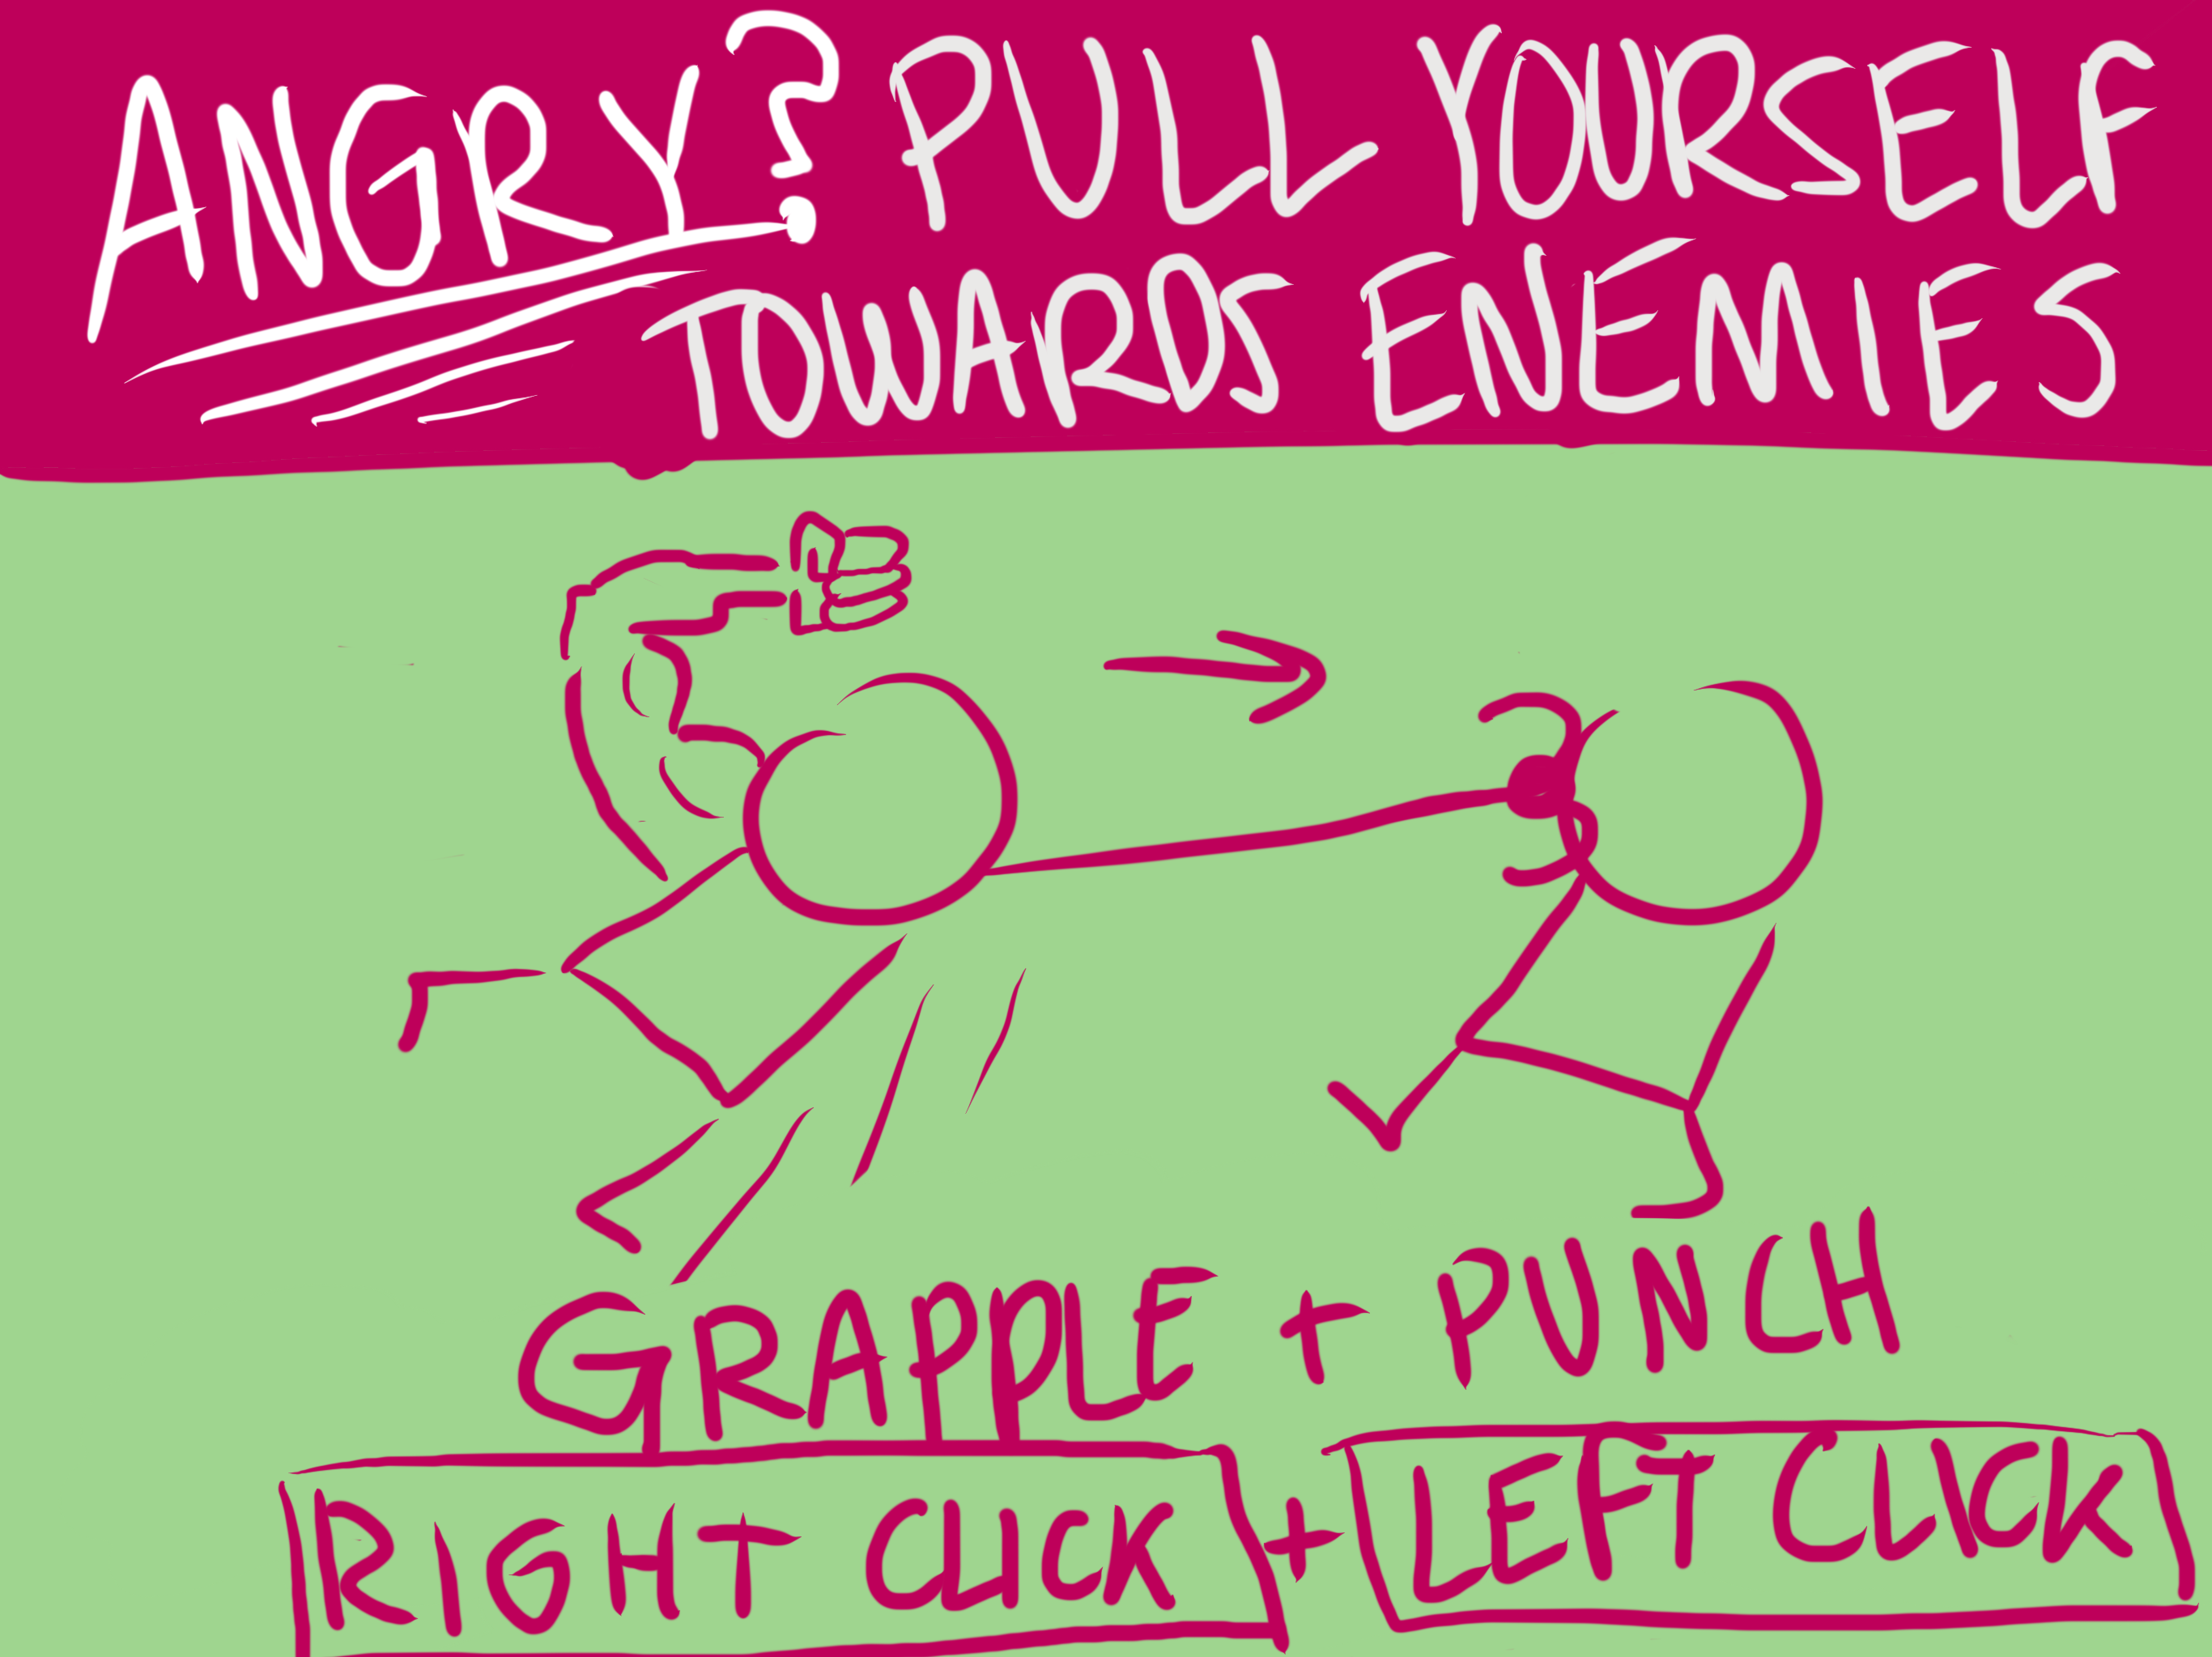 ANGRY? PULL YOURSELF
TOWARDS ENEMIES
GRAPPLE + PUNCH
RIGHT CLICK + LEFT CLICK